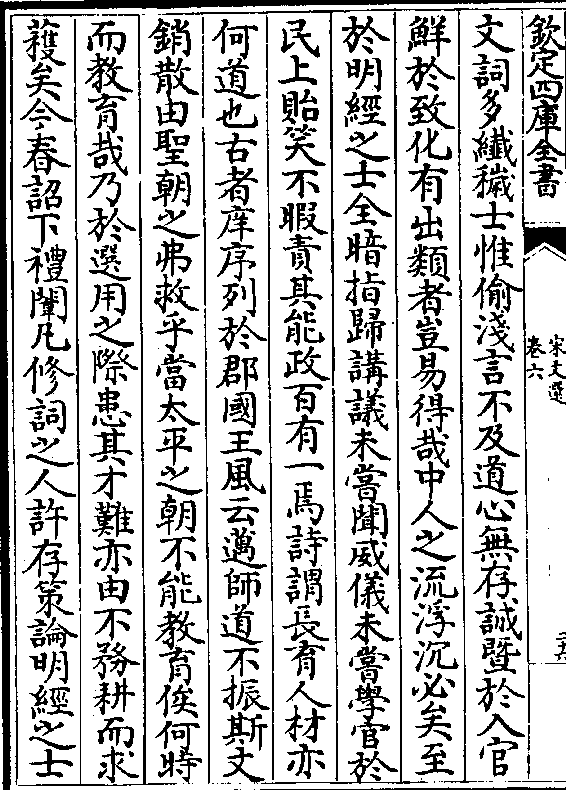 欽定四庫全書
宋文選
卷六
文詞多纎穢士惟偷淺言不及道心無存誠曁於入官
鮮於致化有出類者豈易得哉中人之流浮沉必矣至
於明經之士全暗指歸講議未嘗聞威儀未嘗學官於
民上貽笑不暇責其能政百有一焉詩謂長育人材亦
何道也古者庠序列於郡國王風云邁師道不振斯文
銷散由聖朝之弗救乎當太平之朝不能教育俟何時
而教育哉乃於選用之際患其才難亦由不務耕而求
穫矣今春詔下禮闈凡修詞之人許存策論明經之士